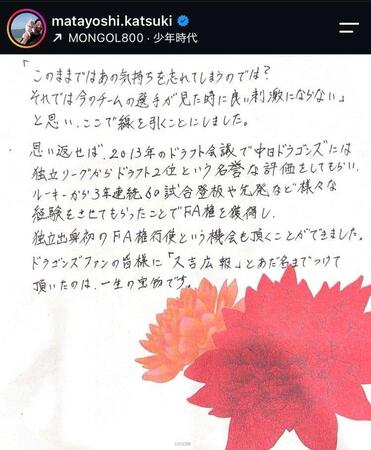 matayoshi.katsuki
MONGOL800・少年時代
「このままではあの気持ちを忘れてしまうのでは?
それでは今のチームの選手が見た時に良い刺激にならない」
と思い、ここで線を引くことにしました。
思い返せば、2013年のドラフト会議で中日ドラゴンズには
独立リーグからドラフト2位という名誉な評価をしてもらい、
ルーキーから3年連続60試合登板や先発など様々な
経験をさせてもらったことでFA権を獲得し、
独立出身初のFA権行使という機会も頂くことができました。
ドラゴンズファンの皆様に「又吉広報」とあだ名までつけて
頂いたのは、一生の宝物です。